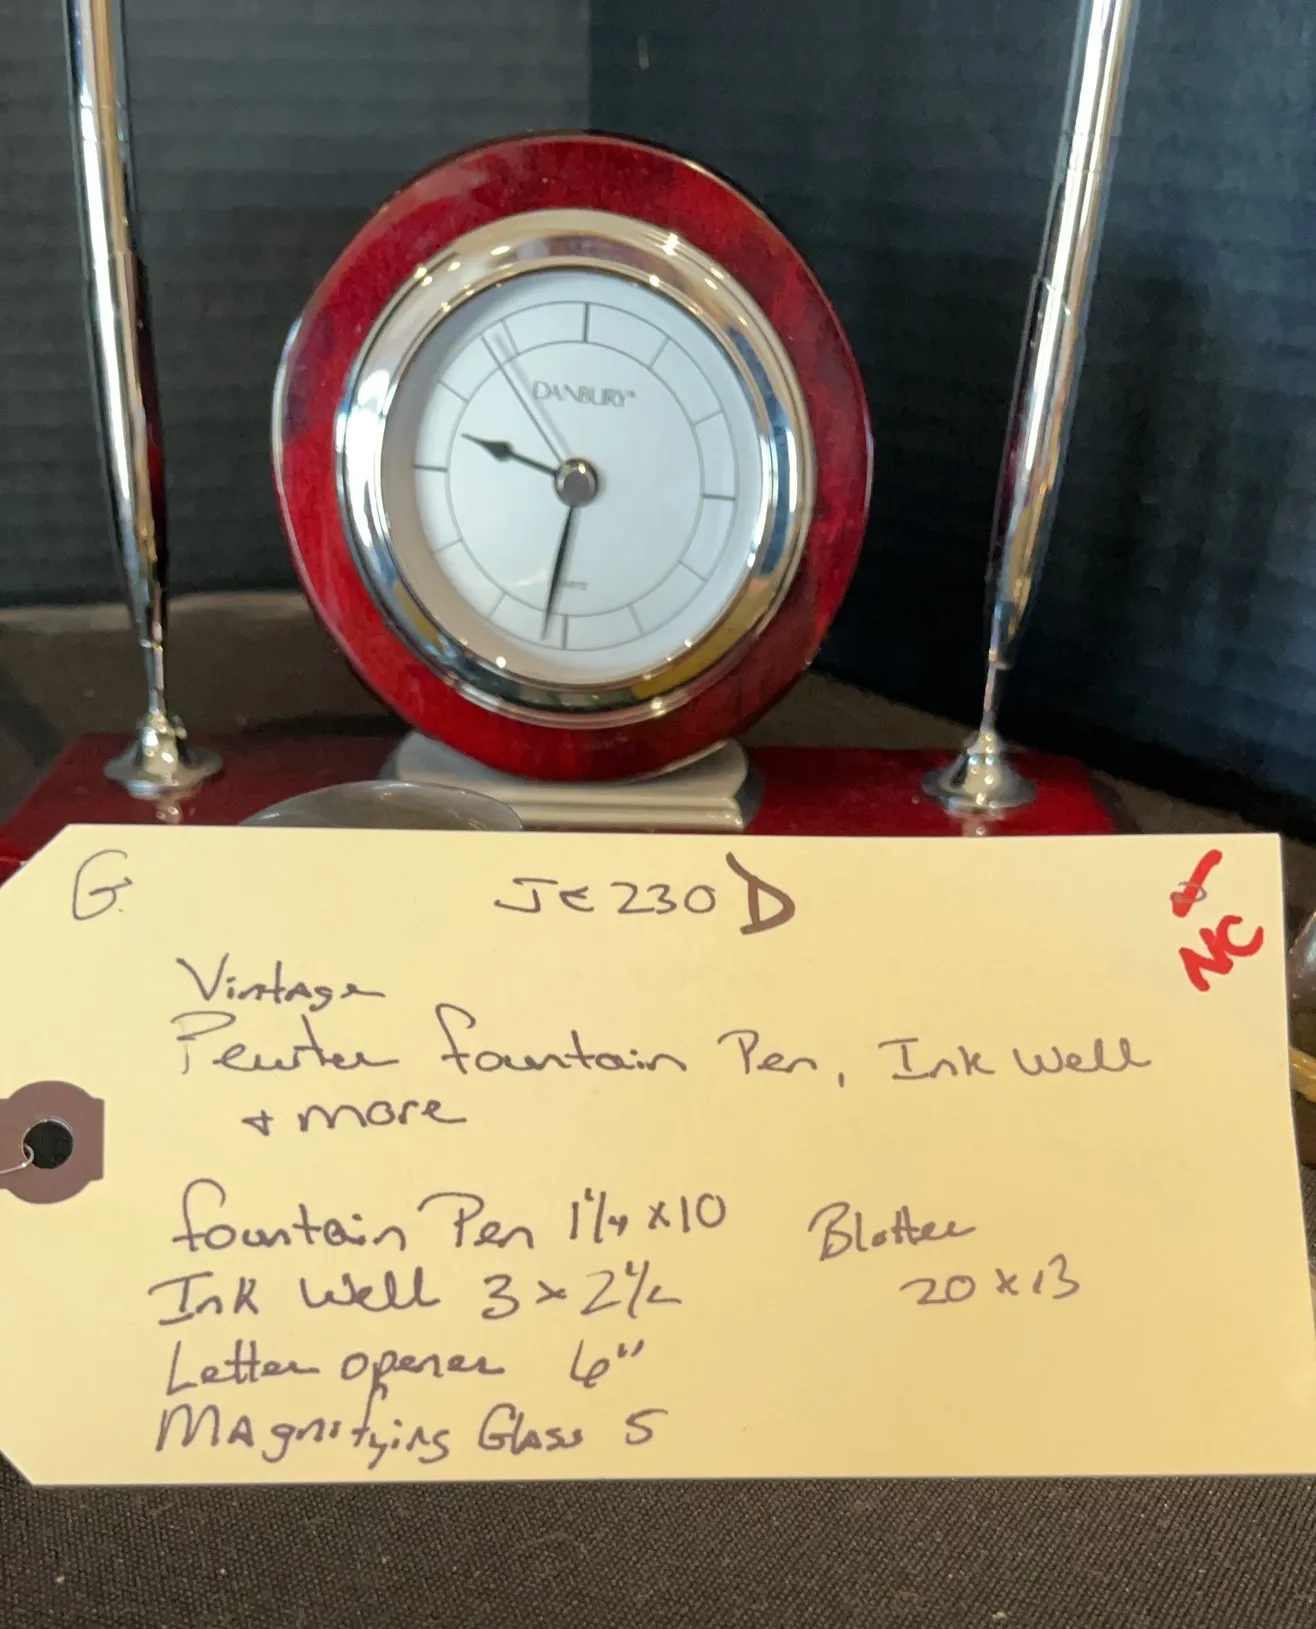 DANBURY
G.
JE 230 D
NC
Vintage
Pewter fountain Pen, Ink Well
+ more
fountain Pen 1 1/4 x 10
Blotter
20 x 13
Ink Well 3 x 2 1/2
Letter opener 6"
Magnifying Glass 5